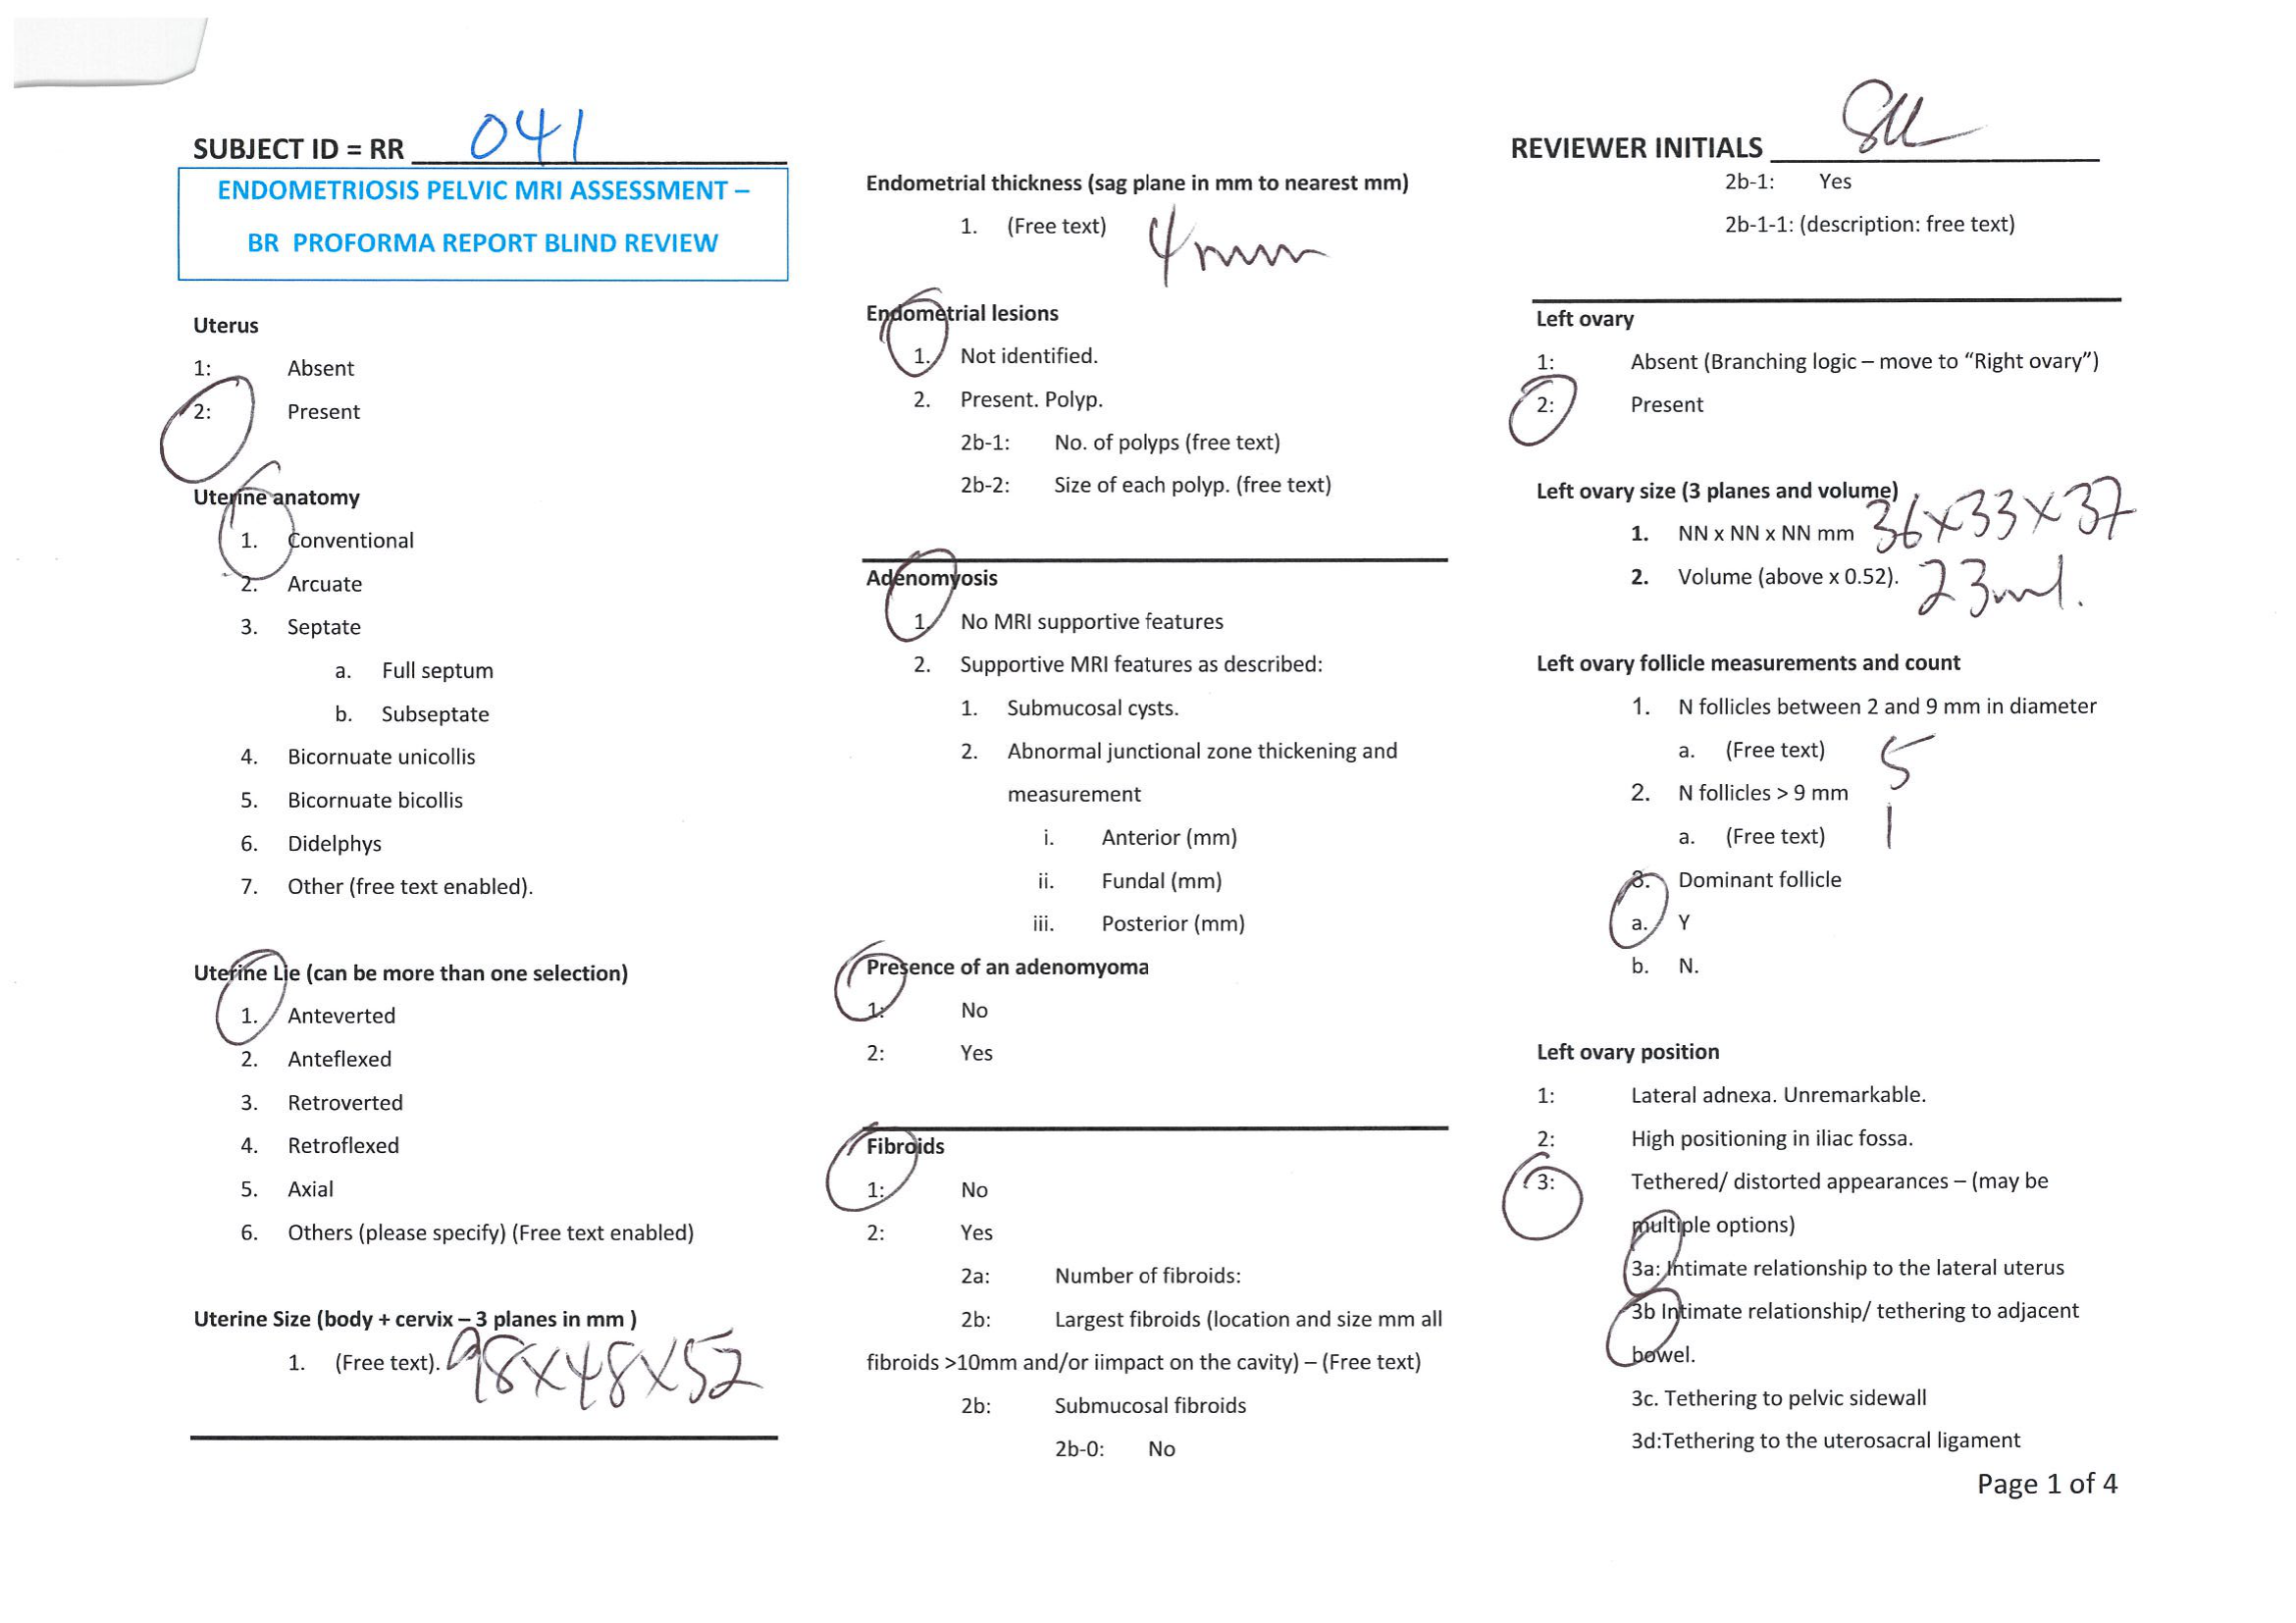 SUBJECT ID = RR 041
ENDOMETRIOSIS PELVIC MRI ASSESSMENT –
BR PROFORMA REPORT BLIND REVIEW
Uterus
1: Absent
2: Present
Uterine anatomy
1. Conventional
2. Arcuate
3. Septate
a. Full septum
b. Subseptate
4. Bicornuate unicollis
5. Bicornuate bicollis
6. Didelphys
7. Other (free text enabled).
Uterine Lie (can be more than one selection)
1. Anteverted
2. Anteflexed
3. Retroverted
4. Retroflexed
5. Axial
6. Others (please specify) (Free text enabled)
Uterine Size (body + cervix – 3 planes in mm )
1. (Free text). 98x48x52
Endometrial thickness (sag plane in mm to nearest mm)
1. (Free text) 4mm
Endometrial lesions
1. Not identified.
2. Present. Polyp.
2b-1: No. of polyps (free text)
2b-2: Size of each polyp. (free text)
Adenomyosis
1. No MRI supportive features
2. Supportive MRI features as described:
1. Submucosal cysts.
2. Abnormal junctional zone thickening and
measurement
i. Anterior (mm)
ii. Fundal (mm)
iii. Posterior (mm)
Presence of an adenomyoma
1: No
2: Yes
Fibroids
1: No
2: Yes
2a: Number of fibroids:
2b: Largest fibroids (location and size mm all
fibroids >10mm and/or iimpact on the cavity) – (Free text)
2b: Submucosal fibroids
2b-0: No
REVIEWER INITIALS
2b-1: Yes
2b-1-1: (description: free text)
Left ovary
1: Absent (Branching logic – move to “Right ovary”)
2: Present
Left ovary size (3 planes and volume)
1. NN x NN x NN mm 36x33x37
2. Volume (above x 0.52). 23ml.
Left ovary follicle measurements and count
1. N follicles between 2 and 9 mm in diameter
a. (Free text) 5
2. N follicles > 9 mm
a. (Free text) 1
3. Dominant follicle
a. Y
b. N.
Left ovary position
1: Lateral adnexa. Unremarkable.
2: High positioning in iliac fossa.
3: Tethered/ distorted appearances – (may be
multiple options)
3a: Intimate relationship to the lateral uterus
3b Intimate relationship/ tethering to adjacent
bowel.
3c. Tethering to pelvic sidewall
3d:Tethering to the uterosacral ligament
Page 1 of 4